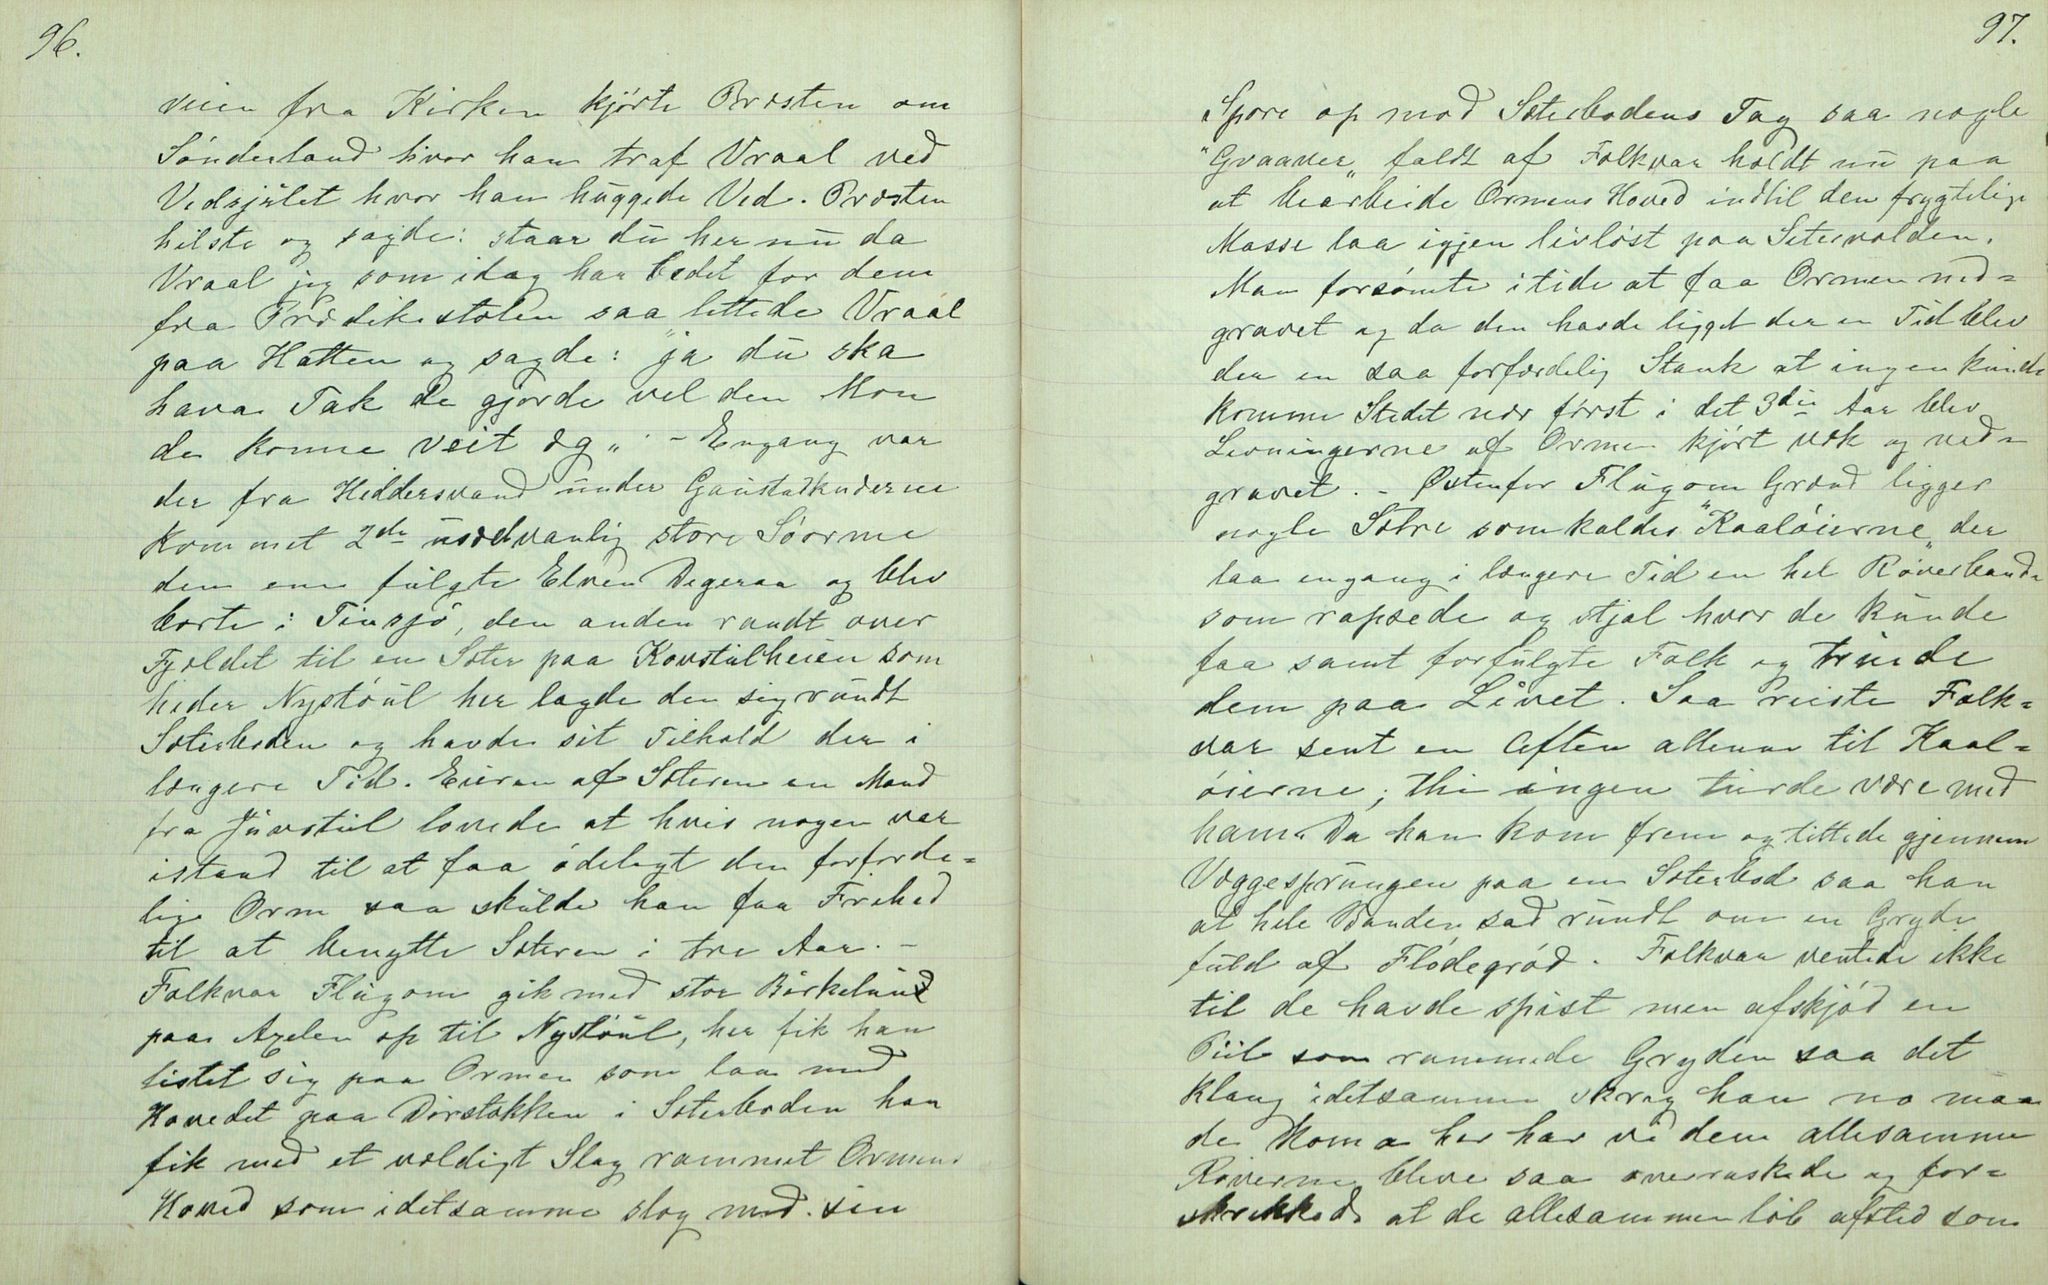 96.
veien fra Kirken kjørte Præsten om
Sønderland hvor han traf Vraal ved
Vedsjulet hvor han huggede Ved. Præsten
hilste og sagde: staar du her nu da
Vraal jeg som idag har bedet for dem
fra Prædikestolen saa lettede Vraal
paa Hatten og sagde: "ja du ska
hava Tak De gjorde vel den Mon
de konne veit og„ - Engang var
der fra Hiddersvand under Gaustadknuderne
kommet 2de usedvanlig store Søorme
den ene fulgte Elven Digeraa og blev
borte i Tinsjø, den anden randt over
Fjeldet til en Sæter paa Kovstulheien som
heder Nystøul her lagde den sig rundt
Sæterboden og havde sit Tilhold der i
længere Tid. Eieren af Sæteren en Mand
fra Juvstul lovede at hvis nogen var
istand til at faa ødelagt den forfærde=
lige Orm saa skulde han faa Frihed
til at benytte Sæteren i tre Aar. -
Folkvar Flugom gik med stor Birkelund
paa Axelen op til Nystøul, her fik han
listet sig paa Ormen som laa med
Hovedet paa Dørstokken i Sæterboden han
fik med et vældigt Slag rammet Ormens
Hoved som idetsamme slog med sin
97.
Spore op mod Sæterbodens Tag saa nogle
"Graaver„ faldt af Folkvar holdt nu paa
at bearbeide Ormens Hoved indtil den frygtelige
Masse laa igjen livløst paa Sætervolden.
Man forsømte itide at faa Ormen ned=
gravet og da den havde ligget der en Tid blev
der en saa forfærdelig Stank at ingen kunde
komme Stedet nær først i det 3die Aar blev
Levningerne af Ormen kjørt væk og ned=
gravet. - Østenfor Flugom Grænd ligger
nogle Sætre som kaldes "Kaaløierne„ der
laa engang i længere Tid en hel Røverbande
som rapsede og stjal hvor de kunde
faa samt forfulgte Folk og truede
dem paa Livet. Saa reiste Folk=
var sent en Aften allene til Kaal=
øierne; thi ingen turde være med
ham. Da han kom frem og tittede gjennem
Væggesprungen paa en Sæterbod saa han
at hele Banden sad rundt om en Gryde
fuld af Flødegrød. Folkvar ventede ikke
til de havde spist men afskjød en
Piil som rammede Gryden saa det
klang idetsamme skreg han no maa
de koma her har vi dem allesamme
Røverne bleve saa overraskede og for=
skrekkede at de allesammen løb afsted som